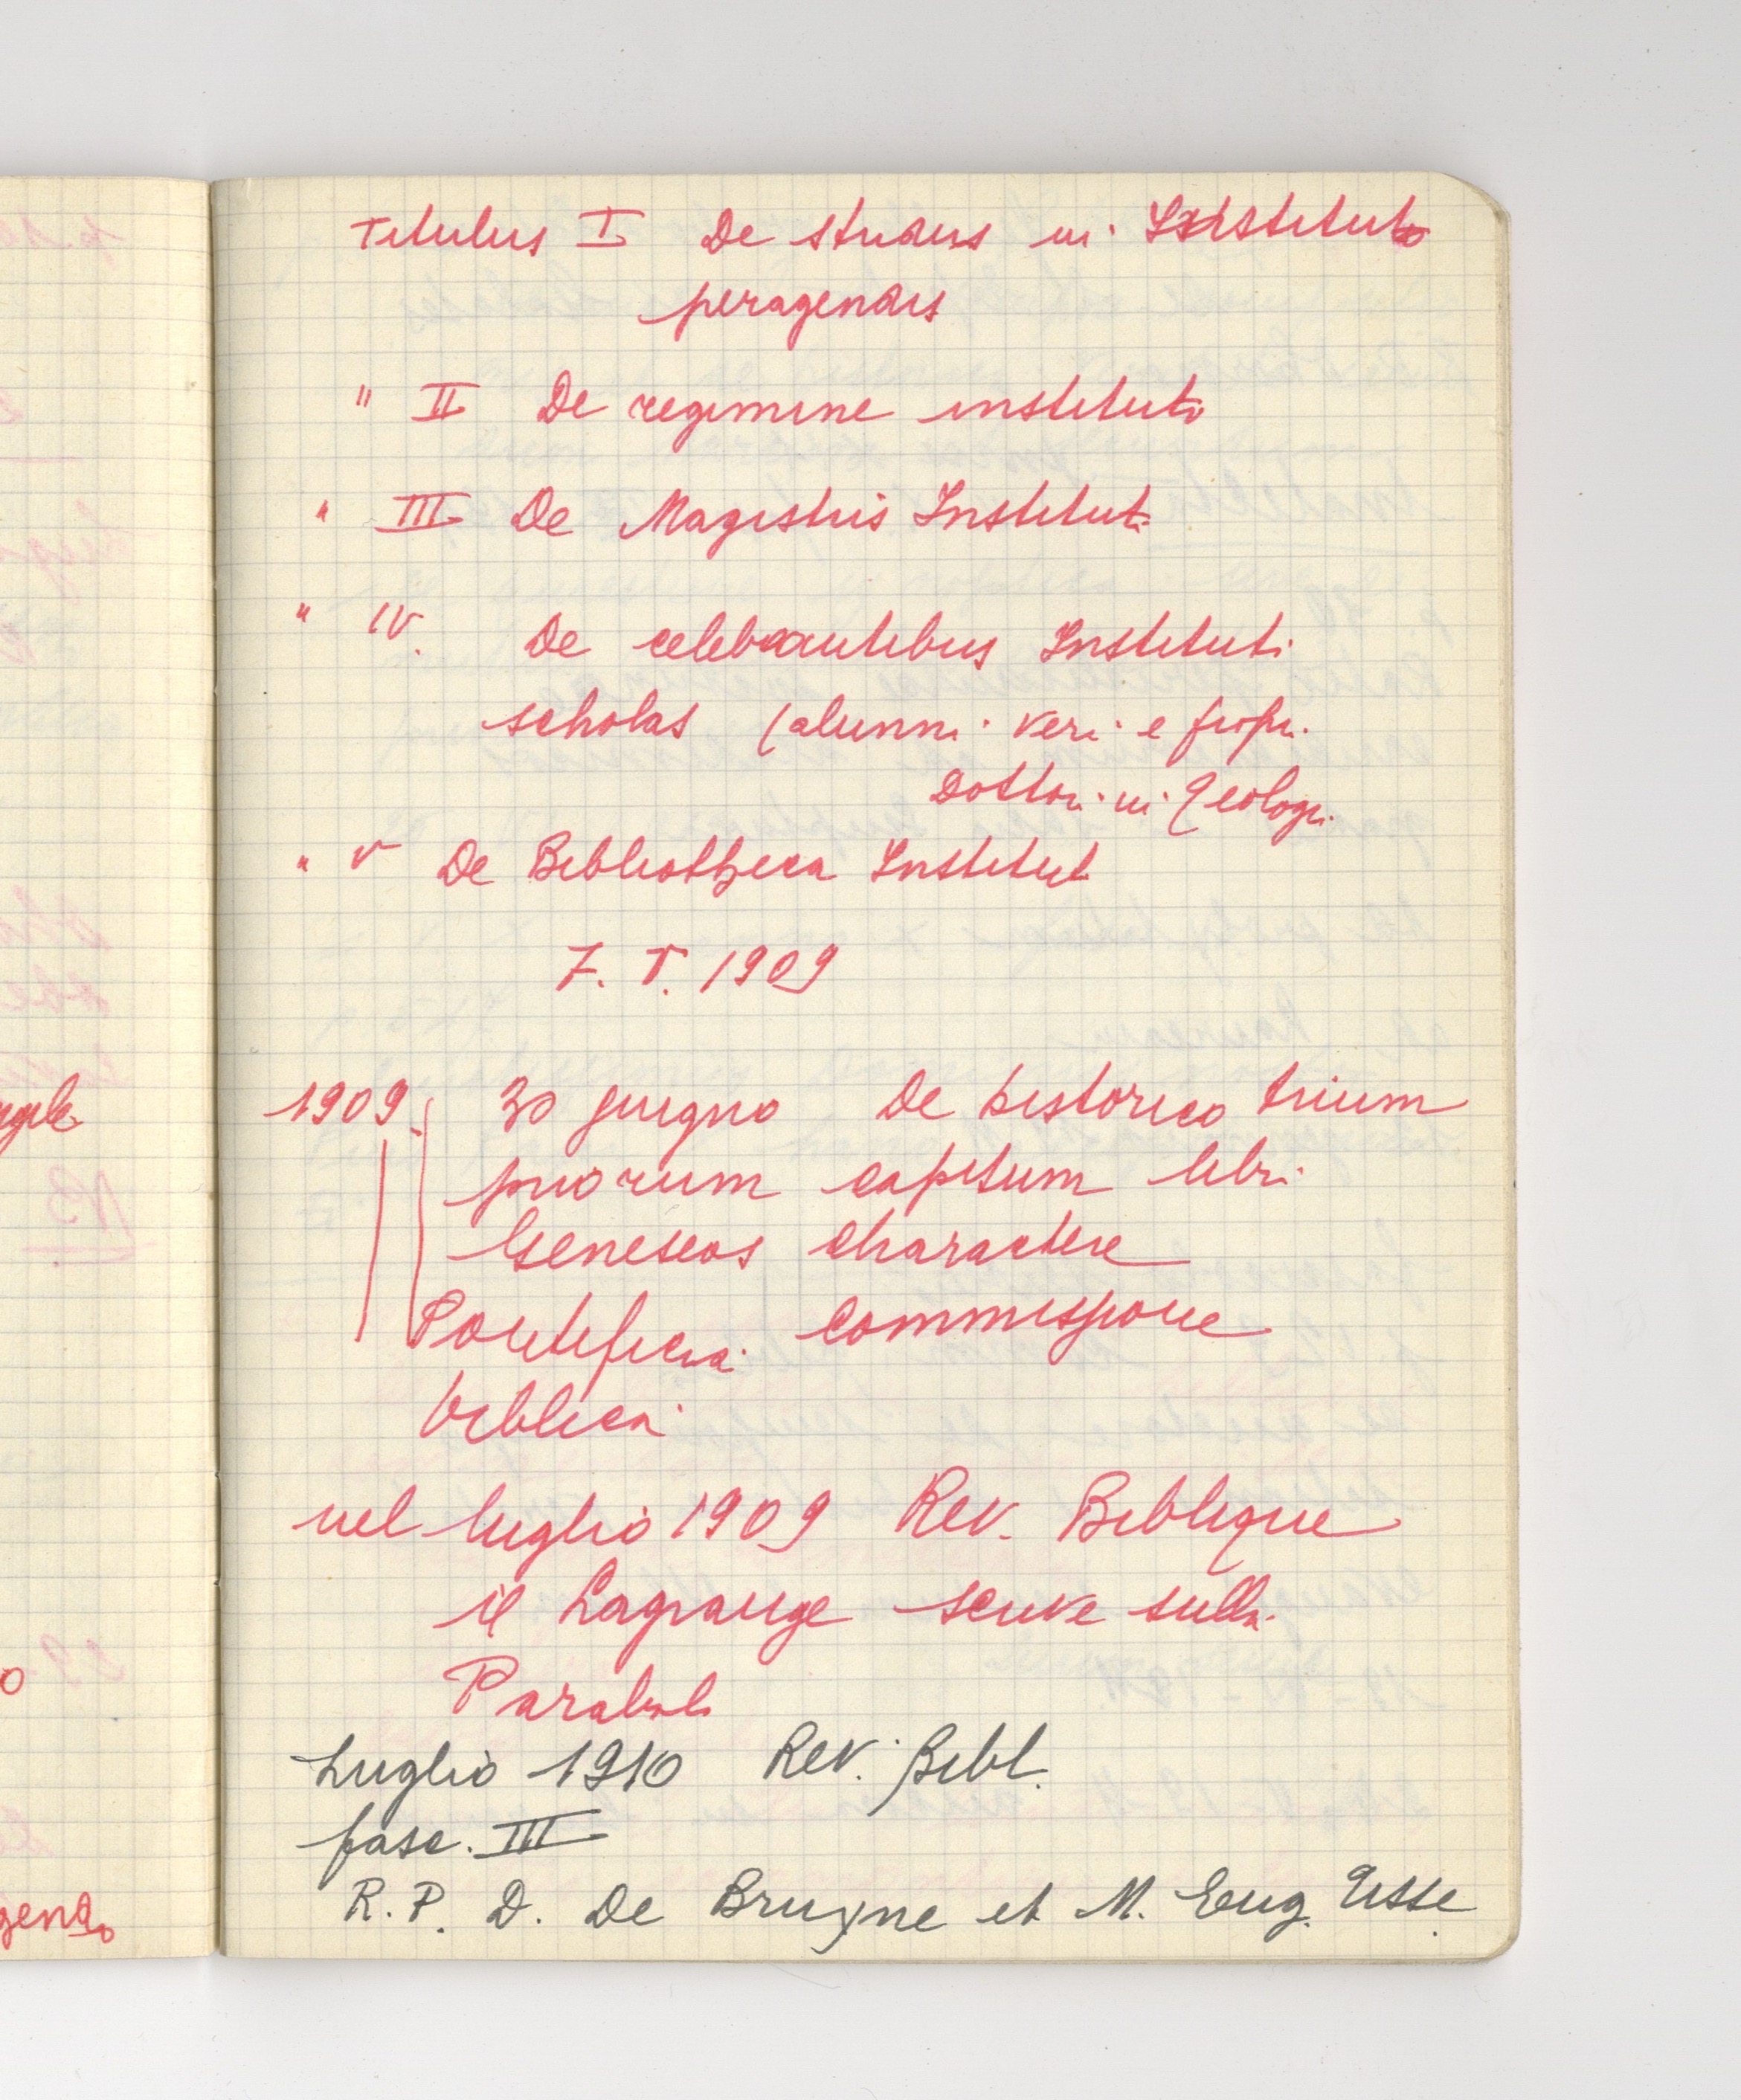 Titulus I De studiis in Instituto
peragendis
" II De regimine instituti
" III De Magistris Instituti
" IV. De celebrantibus Instituti
scholas (alunni veri e propri
Dottori in Teologi
" V De Bibliotheca Instituti
7. V. 1909
1909. 30 giugno De historico trium
priorum capitum libri
Geneseos charactere
Pontificia Commissione
biblica
nel luglio 1909 Rev. Biblique
il Lagrange scrive sulla
Parabole
Luglio 1910 Rev. Bibl.
fasc. III
R. P. D. De Bruyne et M. Eug. Tisse
ngele
o
gendo